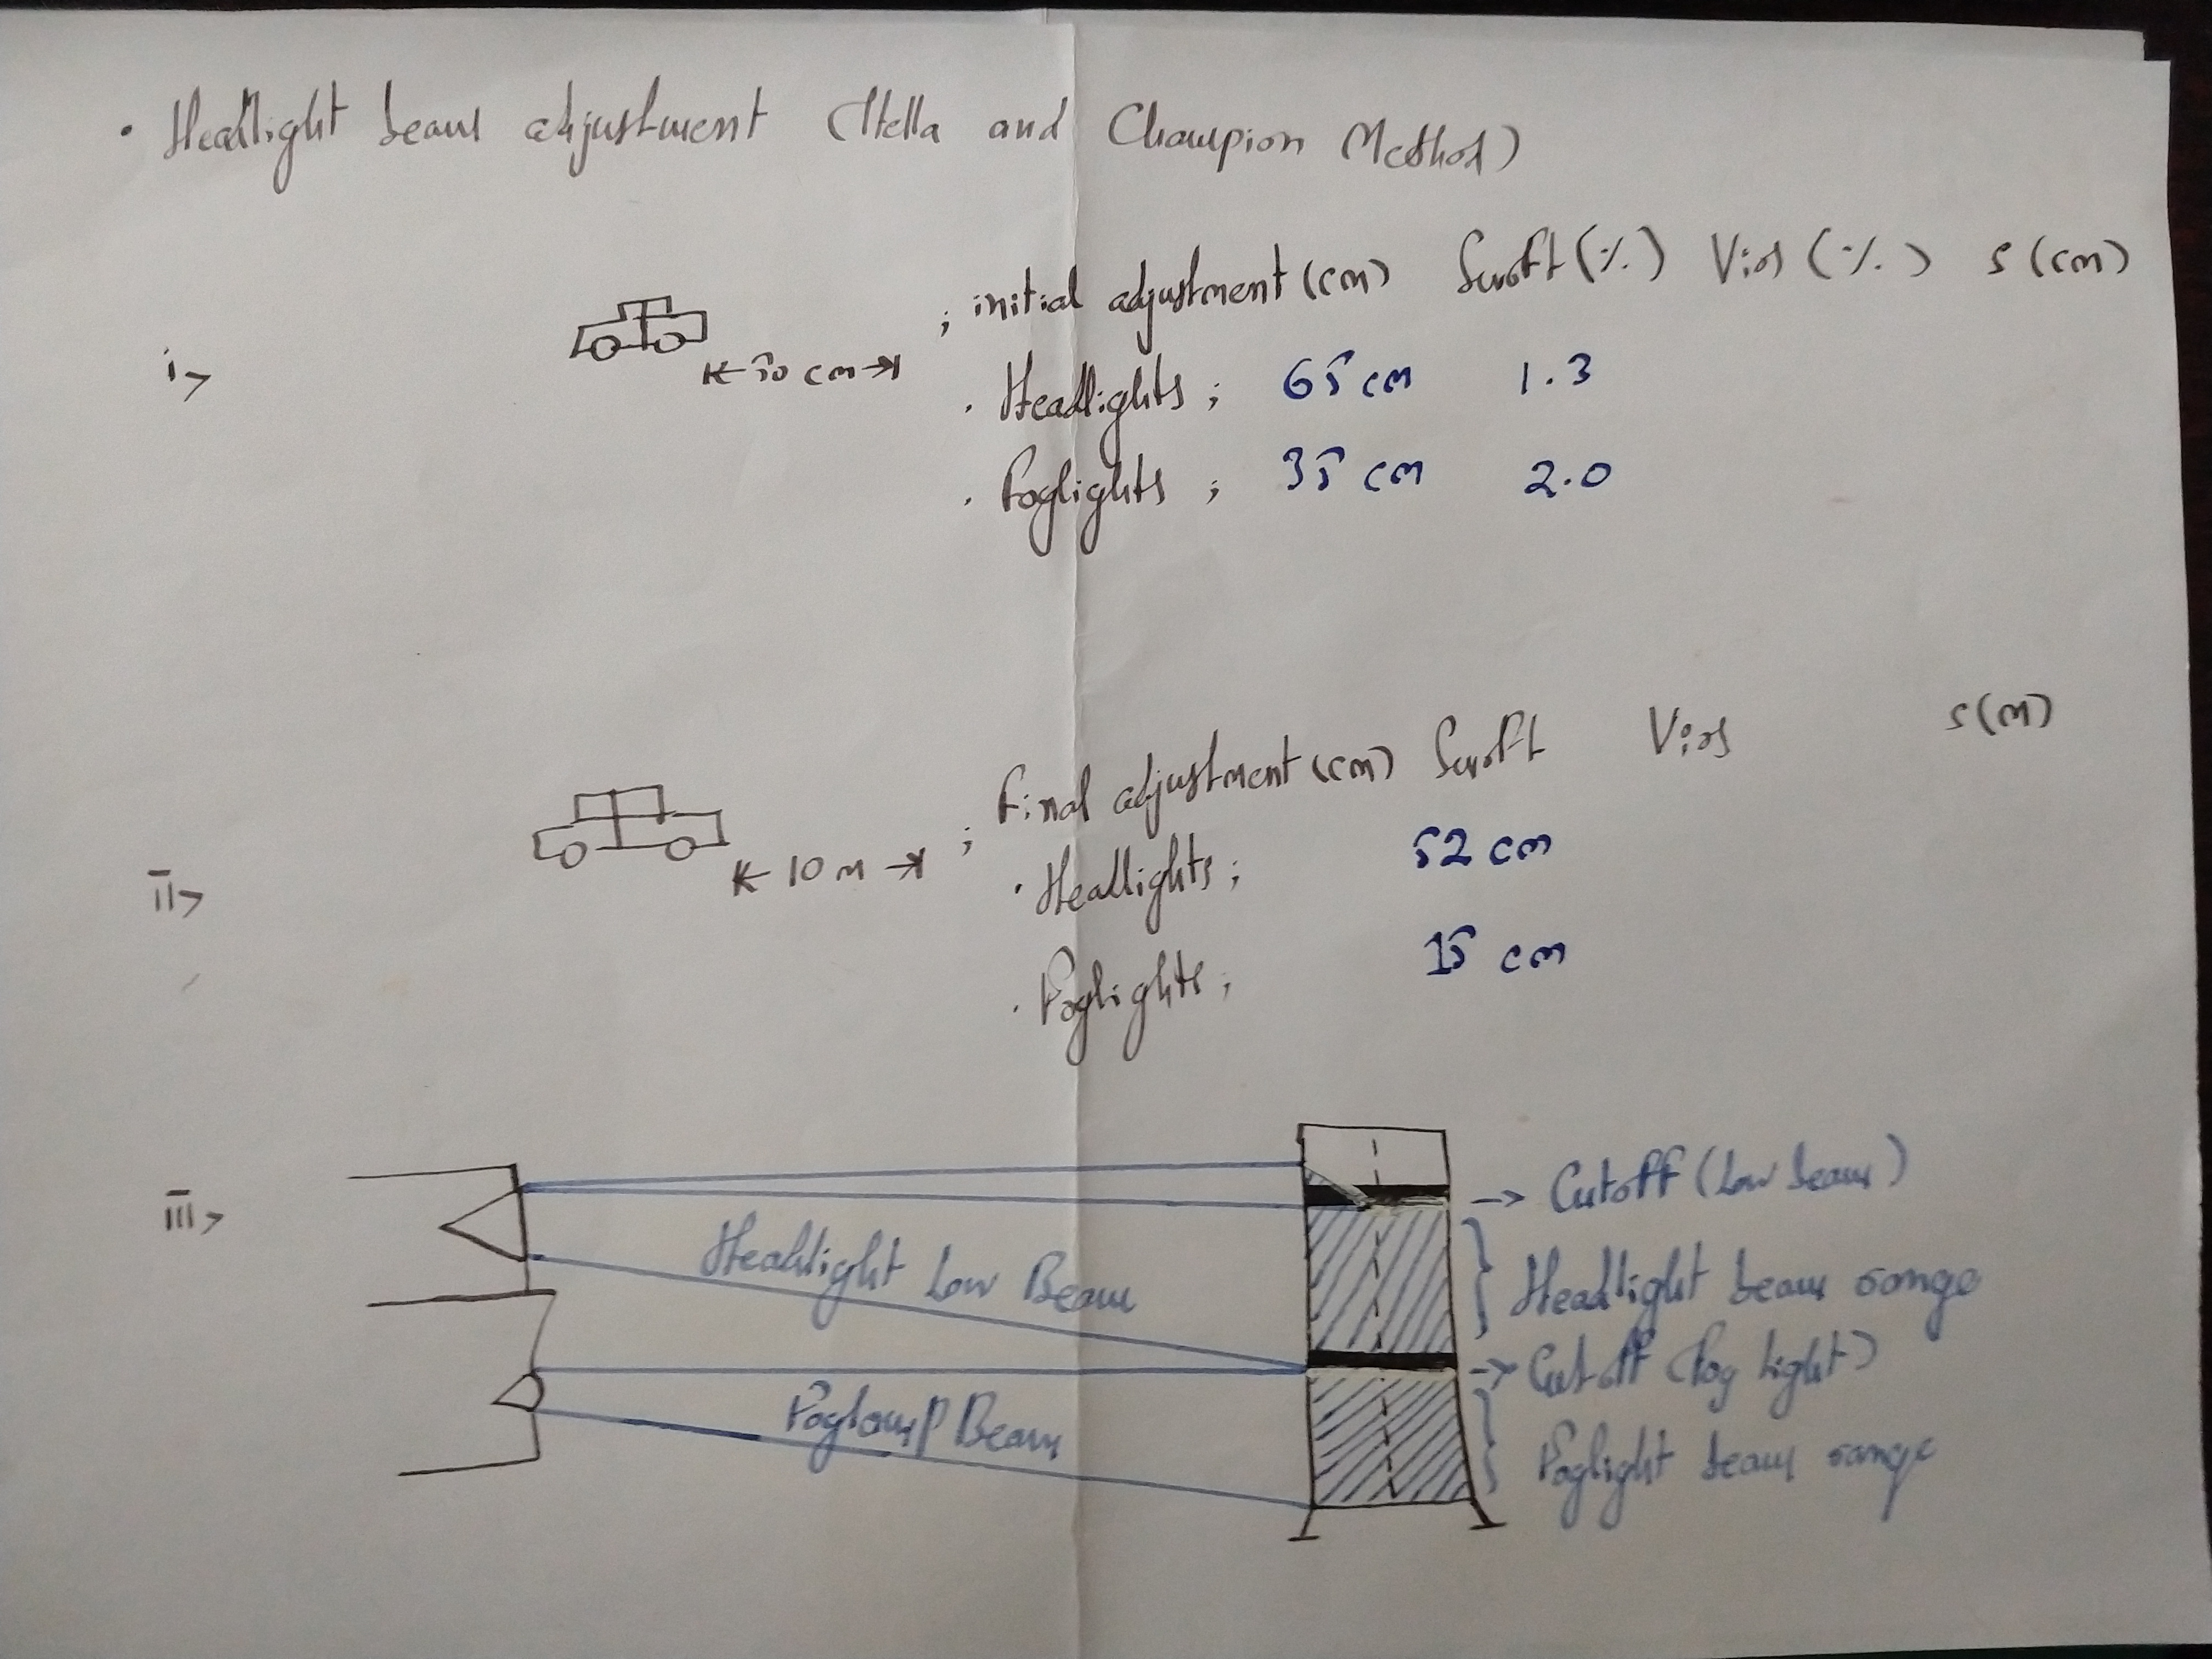 • Headlight beam adjustment (Hella and Champion Method)
i> K 50 cm → ; initial adjustment (cm) Swift (%) Vios (%) s (cm)
• Headlights ; 65 cm 1.3
• Foglights ; 35 cm 2.0
ii> K 10 m → ; Final adjustment (cm) Swift Vios s (m)
• Headlights ; 52 cm
• Foglights ; 15 cm
iii> → Cutoff (Low beam)
Headlight Low Beam } Headlight beam range
→ Cutoff (Fog Light)
Foglamp Beam } Foglight beam range